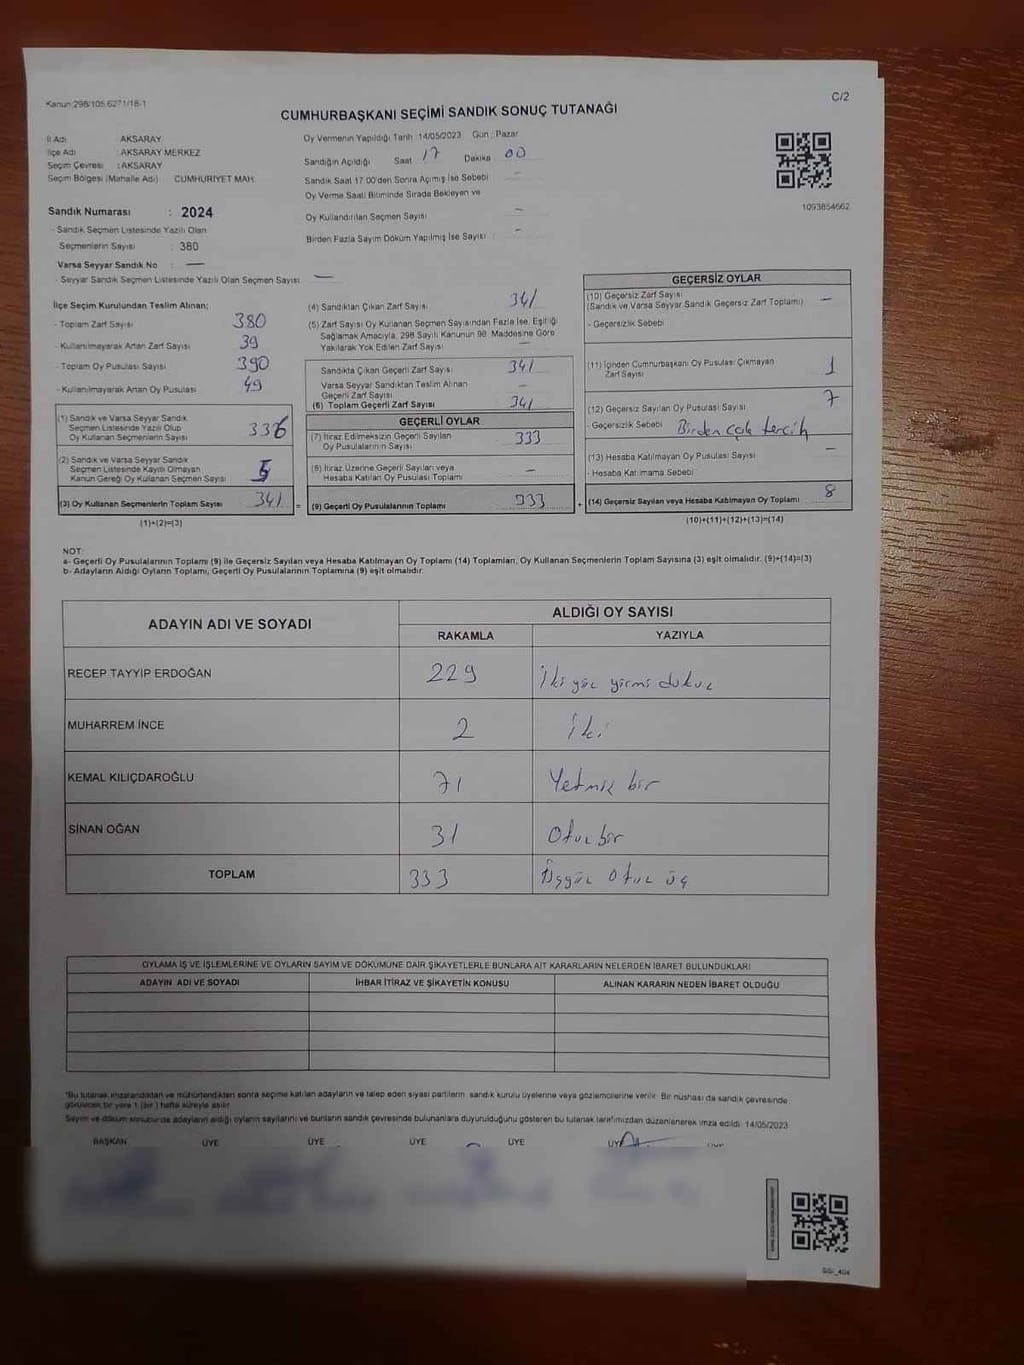 Kanun 298/105,6271/18-1
C/2
CUMHURBAŞKANI SEÇİMİ SANDIK SONUÇ TUTANAĞI
İl Adı : AKSARAY
İlçe Adı : AKSARAY MERKEZ
Seçim Çevresi : AKSARAY
Seçim Bölgesi (Mahalle Adı) CUMHURİYET MAH.
Sandık Numarası : 2024
- Sandık Seçmen Listesinde Yazılı Olan
Seçmenlerin Sayısı : 380
Varsa Seyyar Sandık No : —
- Seyyar Sandık Seçmen Listesinde Yazılı Olan Seçmen Sayısı —
Oy Vermenin Yapıldığı Tarih :14/05/2023 Gün : Pazar
Sandığın Açıldığı Saat 17 Dakika 00
Sandık Saat 17:00'den Sonra Açımış İse Sebebi —
Oy Verme Saati Bitiminde Sırada Bekleyen ve
Oy Kullandırılan Seçmen Sayısı —
Birden Fazla Sayım Döküm Yapılmış İse Sayısı : —
1093854662
İlçe Seçim Kurulundan Teslim Alınan;
- Toplam Zarf Sayısı 380
- Kullanılmayarak Artan Zarf Sayısı 39
- Toplam Oy Pusulası Sayısı 390
- Kullanılmayarak Artan Oy Pusulası 49
(1) Sandık ve Varsa Seyyar Sandık
Seçmen Listesinde Yazılı Olup
Oy Kullanan Seçmenlerin Sayısı 336
(2) Sandık ve Varsa Seyyar Sandık
Seçmen Listesinde Kayıtlı Olmayan
Kanun Gereği Oy Kullanan Seçmen Sayısı 5
(3) Oy Kullanan Seçmenlerin Toplam Sayısı 341
(1)+(2)=(3)
(4) Sandıktan Çıkan Zarf Sayısı 341
(5) Zarf Sayısı Oy Kullanan Seçmen Sayısından Fazla İse, Eşitliği
Sağlamak Amacıyla, 298 Sayılı Kanunun 98. Maddesine Göre
Yakılarak Yok Edilen Zarf Sayısı —
Sandıkta Çıkan Geçerli Zarf Sayısı 341
Varsa Seyyar Sandıktan Teslim Alınan
Geçerli Zarf Sayısı —
(6) Toplam Geçerli Zarf Sayısı 341
GEÇERLİ OYLAR
(7) İtiraz Edilmeksizin Geçerli Sayılan
Oy Pusulalarının Sayısı 333
(8) İtiraz Üzerine Geçerli Sayılan veya
Hesaba Katılan Oy Pusulası Toplamı —
= (9) Geçerli Oy Pusulalarının Toplamı 333
GEÇERSİZ OYLAR
(10) Geçersiz Zarf Sayısı
(Sandık ve Varsa Seyyar Sandık Geçersiz Zarf Toplamı) —
- Geçersizlik Sebebi
(11) İçinden Cumhurbaşkanı Oy Pusulası Çıkmayan
Zarf Sayısı 1
(12) Geçersiz Sayılan Oy Pusulası Sayısı 7
- Geçersizlik Sebebi Birden çok tercih
(13) Hesaba Katılmayan Oy Pusulası Sayısı —
- Hesaba Katılmama Sebebi
+ (14) Geçersiz Sayılan veya Hesaba Katılmayan Oy Toplamı 8
(10)+(11)+(12)+(13)=(14)
NOT:
a- Geçerli Oy Pusulalarının Toplamı (9) ile Geçersiz Sayılan veya Hesaba Katılmayan Oy Toplamı (14) Toplamları, Oy Kullanan Seçmenlerin Toplam Sayısına (3) eşit olmalıdır. (9)+(14)=(3)
b- Adayların Aldığı Oyların Toplamı, Geçerli Oy Pusulalarının Toplamına (9) eşit olmalıdır.
ADAYIN ADI VE SOYADI
ALDIĞI OY SAYISI
RAKAMLA YAZIYLA
RECEP TAYYİP ERDOĞAN 229 İki yüz yirmi dokuz
MUHARREM İNCE 2 İki
KEMAL KILIÇDAROĞLU 71 Yetmiş bir
SİNAN OĞAN 31 Otuz bir
TOPLAM 333 Üçyüz Otuz üç
OYLAMA İŞ VE İŞLEMLERİNE VE OYLARIN SAYIM VE DÖKÜMÜNE DAİR ŞİKAYETLERLE BUNLARA AİT KARARLARIN NELERDEN İBARET BULUNDUKLARI
ADAYIN ADI VE SOYADI İHBAR İTİRAZ VE ŞİKAYETİN KONUSU ALINAN KARARIN NEDEN İBARET OLDUĞU
*Bu tutanak imzalandıktan ve mühürlendikten sonra seçime katılan adayların ve talep eden siyasi partilerin sandık kurulu üyelerine veya gözlemcilerine verilir. Bir nüshası da sandık çevresinde
görülecek bir yere 1 (bir) hafta süreyle asılır
Sayım ve döküm sonucunda adayların aldığı oyların sayılarını ve bunların sandık çevresinde bulunanlara duyurulduğunu gösteren bu tutanak tarafımızdan düzenlenerek imza edildi. 14/05/2023
BAŞKAN ÜYE ÜYE ÜYE ÜYE ÜYE